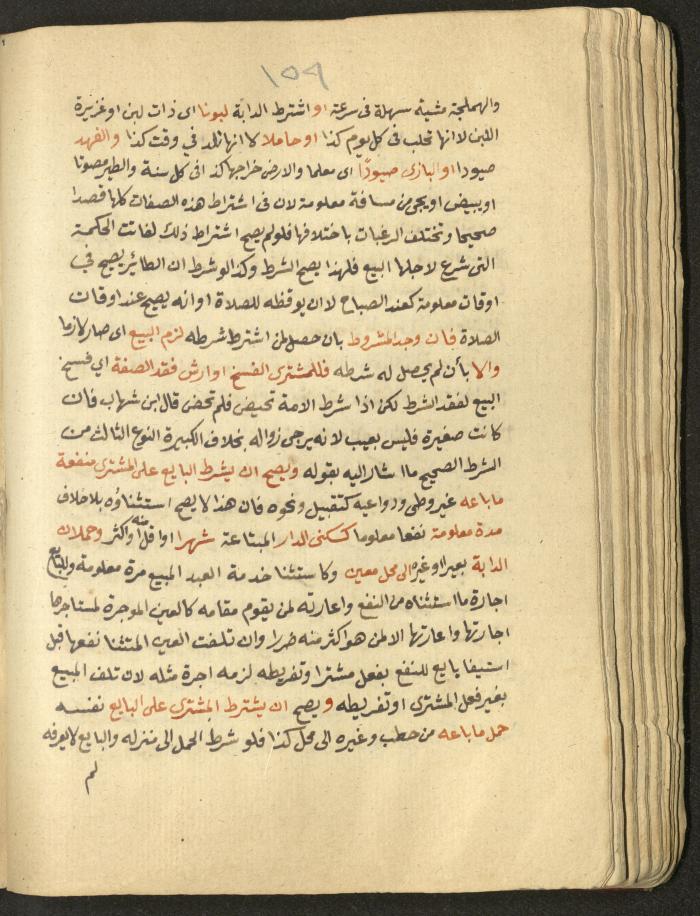 ١٥٩
والهملجة مشية سهلة فى سرعة او اشترط الدابة لبونا اى ذات لبن او غزيرة
اللبن لا انها تحلب فى كل يوم كذا او حاملا لا انها تلد في وقت كذا والفهد
صيودا او البازى صيودًا اى معلما والارض خراجها كذا فى كل سنة والطير مصوتا
او يبيض او يجى من مسافة معلومة لان فى اشتراط هذه الصفات كلها قصدا
صحيحا وتختلف الرغبات باختلافها فلو لم يصح اشتراط ذلك لفاتت الحكمة
التى شرع لاجلها البيع فلهذا يصح الشرط وكذا لو شرط ان الطائر يصيح في
اوقات معلومة كعند الصباح لا ان يوقظه للصلاة او انه يصيح عند اوقات
الصلاة فان وجد المشروط بان حصل لمن اشترط شرطه لزم البيع اى صار لازما
والا بأن لم يحصل له شرطه فللمشترى الفسخ او ارش فقد الصفة اي فسخ
البيع لفقد الشرط لكن اذا شرط الامة تحيض فلم تحض قال ابن شهاب فان
كانت صغيرة فليس بعيب لانه يرجى زواله بخلاف الكبيرة النوع الثالث من
الشرط الصحيح ما اشار اليه بقوله ويصح ان يشرط البايع على المشترى منفعة
ما باعه غير وطى ودواعيه كتقبيل ونحوه فان هذا لا يصح استثناؤه بلا خلاف
مدة معلومة نفعا معلوما كسكنى الدار المبتاعة شهرا او اقل منه او اكثر وحملان
الدابة بعيرا او غيره الى محل معين وكاستثنا خدمة العبد المبيع مرة معلومة وللبايع
اجارة ما استثناه من النفع واعارته لمن يقوم مقامه كالعين الموجرة لمستاجرها
اجارتها واعارتها الا لمن هو اكثر منه ضررا وان تلفت العين المستثنا نفعها قبل
استيفا بايع للنفع بفعل مشترا وتفريطه لزمه اجرة مثله لا ان تلف المبيع
بغير فعل المشترى او تفريطه ويصح ان يشترط المشترى على البايع نفسه
حمل ما باعه من حطب وغيره الى محل كذا فلو شرط الحمل الى منزله والبايع لا يعرفه
لم